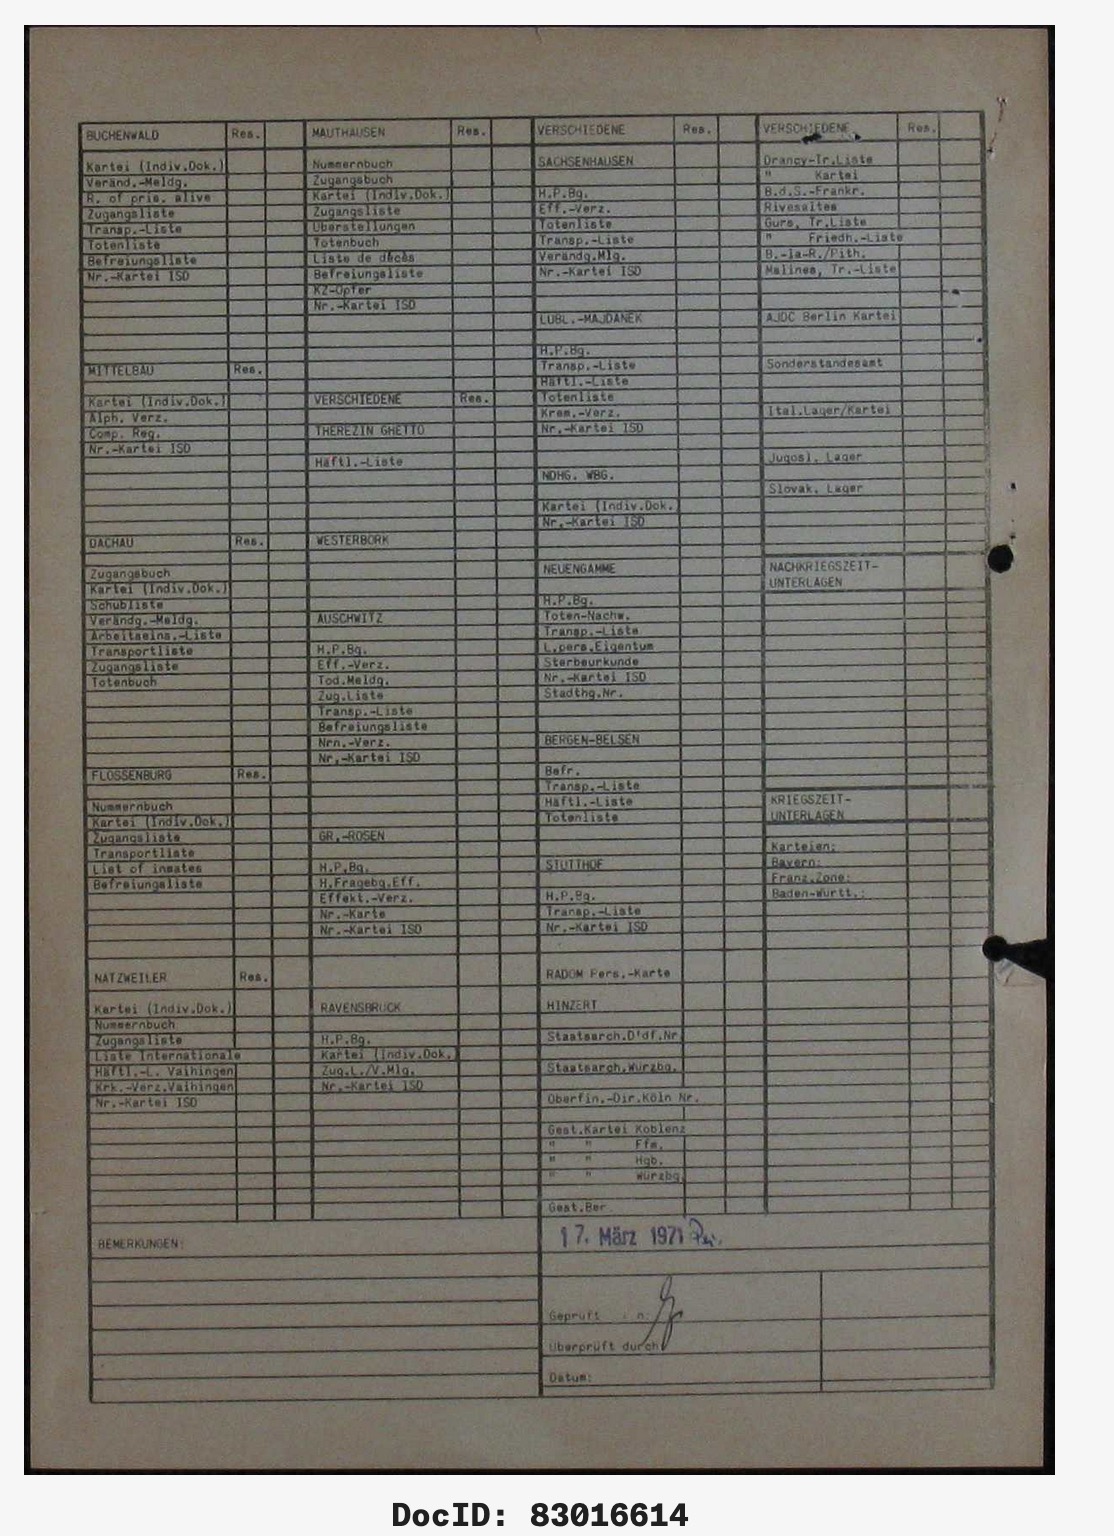 BUCHENWALD Res.
Kartei (Indiv.Dok.)
Veränd.-Meldg.
R. of pris. alive
Zugangsliste
Transp.-Liste
Totenliste
Befreiungsliste
Nr.-Kartei ISD
MITTELBAU Res.
Kartei (Indiv.Dok.)
Alph. Verz.
Comp. Reg.
Nr.-Kartei ISD
DACHAU Res.
Zugangsbuch
Kartei (Indiv.Dok.)
Schubliste
Verändg.-Meldg.
Arbeitseins.-Liste
Transportliste
Zugangsliste
Totenbuch
FLOSSENBURG Res.
Nummernbuch
Kartei (Indiv.Dok.)
Zugangsliste
Transportliste
List of inmates
Befreiungsliste
NATZWEILER Res.
Kartei (Indiv.Dok.)
Nummernbuch
Zugangsliste
Liste Internationale
Häftl.-L. Vaihingen
Krk.-Verz.Vaihingen
Nr.-Kartei ISD
MAUTHAUSEN Res.
Nummernbuch
Zugangsbuch
Kartei (Indiv.Dok.)
Zugangsliste
Überstellungen
Totenbuch
Liste de décès
Befreiungsliste
KZ-Opfer
Nr.-Kartei ISD
VERSCHIEDENE Res.
THEREZIN GHETTO
Häftl.-Liste
WESTERBORK
AUSCHWITZ
H.P.Bg.
Eff.-Verz.
Tod.Meldg.
Zug.Liste
Transp.-Liste
Befreiungsliste
Nrn.-Verz.
Nr.-Kartei ISD
GR.-ROSEN
H.P.Bg.
H.Fragebg.Eff.
Effekt.-Verz.
Nr.-Karte
Nr.-Kartei ISD
RAVENSBRUCK
H.P.Bg.
Kartei (Indiv.Dok.
Zug.L./V.Mlg.
Nr.-Kartei ISD
VERSCHIEDENE Res.
SACHSENHAUSEN
H.P.Bg.
Eff.-Verz.
Totenliste
Transp.-Liste
Verändg.Mlg.
Nr.-Kartei ISD
LUBL.-MAJDANEK
H.P.Bg.
Transp.-Liste
Häftl.-Liste
Totenliste
Krem.-Verz.
Nr.-Kartei ISD
NDHG. WBG.
Kartei (Indiv.Dok.
Nr.-Kartei ISD
NEUENGAMME
H.P.Bg.
Toten-Nachw.
Transp.-Liste
L.pers.Eigentum
Sterbeurkunde
Nr.-Kartei ISD
Stadthg.Nr.
BERGEN-BELSEN
Befr.
Transp.-Liste
Häftl.-Liste
Totenliste
STUTTHOF
H.P.Bg.
Transp.-Liste
Nr.-Kartei ISD
RADOM Pers.-Karte
HINZERT
Staatsarch.D'df.Nr
Staatsarch.Würzbg.
Oberfin.-Dir.Köln Nr.
Gest.Kartei Koblenz
" " Ffm.
" " Hgb.
" " Würzbg.
Gest.Ber.
VERSCHIEDENE Res.
Drancy-Tr.Liste
" Kartei
B.d.S.-Frankr.
Rivesaltes
Gurs, Tr.Liste
" Friedh.-Liste
B.-la-R./Pith.
Malines, Tr.-Liste
AJDC Berlin Kartei
Sonderstandesamt
Ital.Lager/Kartei
Jugosl. Lager
Slovak. Lager
NACHKRIEGSZEIT-
UNTERLAGEN
KRIEGSZEIT-
UNTERLAGEN
Karteien:
Bayern:
Franz.Zone:
Baden-Württ.:
BEMERKUNGEN:
17. März 1971
Geprüft
Überprüft durch
Datum:
DocID: 83016614